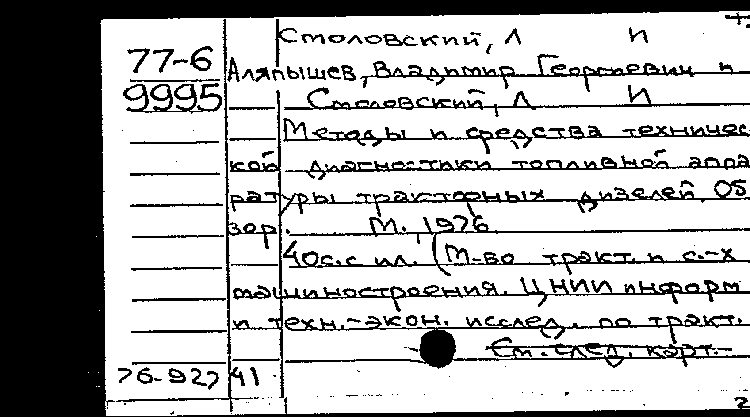 Столовский, Л И
77-6
Аляпышев, Владимир Георгиевич и
9995
Столовский, Л И
Методы и средства техничес
кой диагностики топливной аппа
ратуры тракторных дизелей. Об
зор. М., 1976.
40с. с ил. (М-во тракт. и с.-х
машиностроения. ЦНИИ информ
и техн.-экон. исслед. по тракт.
См. след. карт.
76-927 41